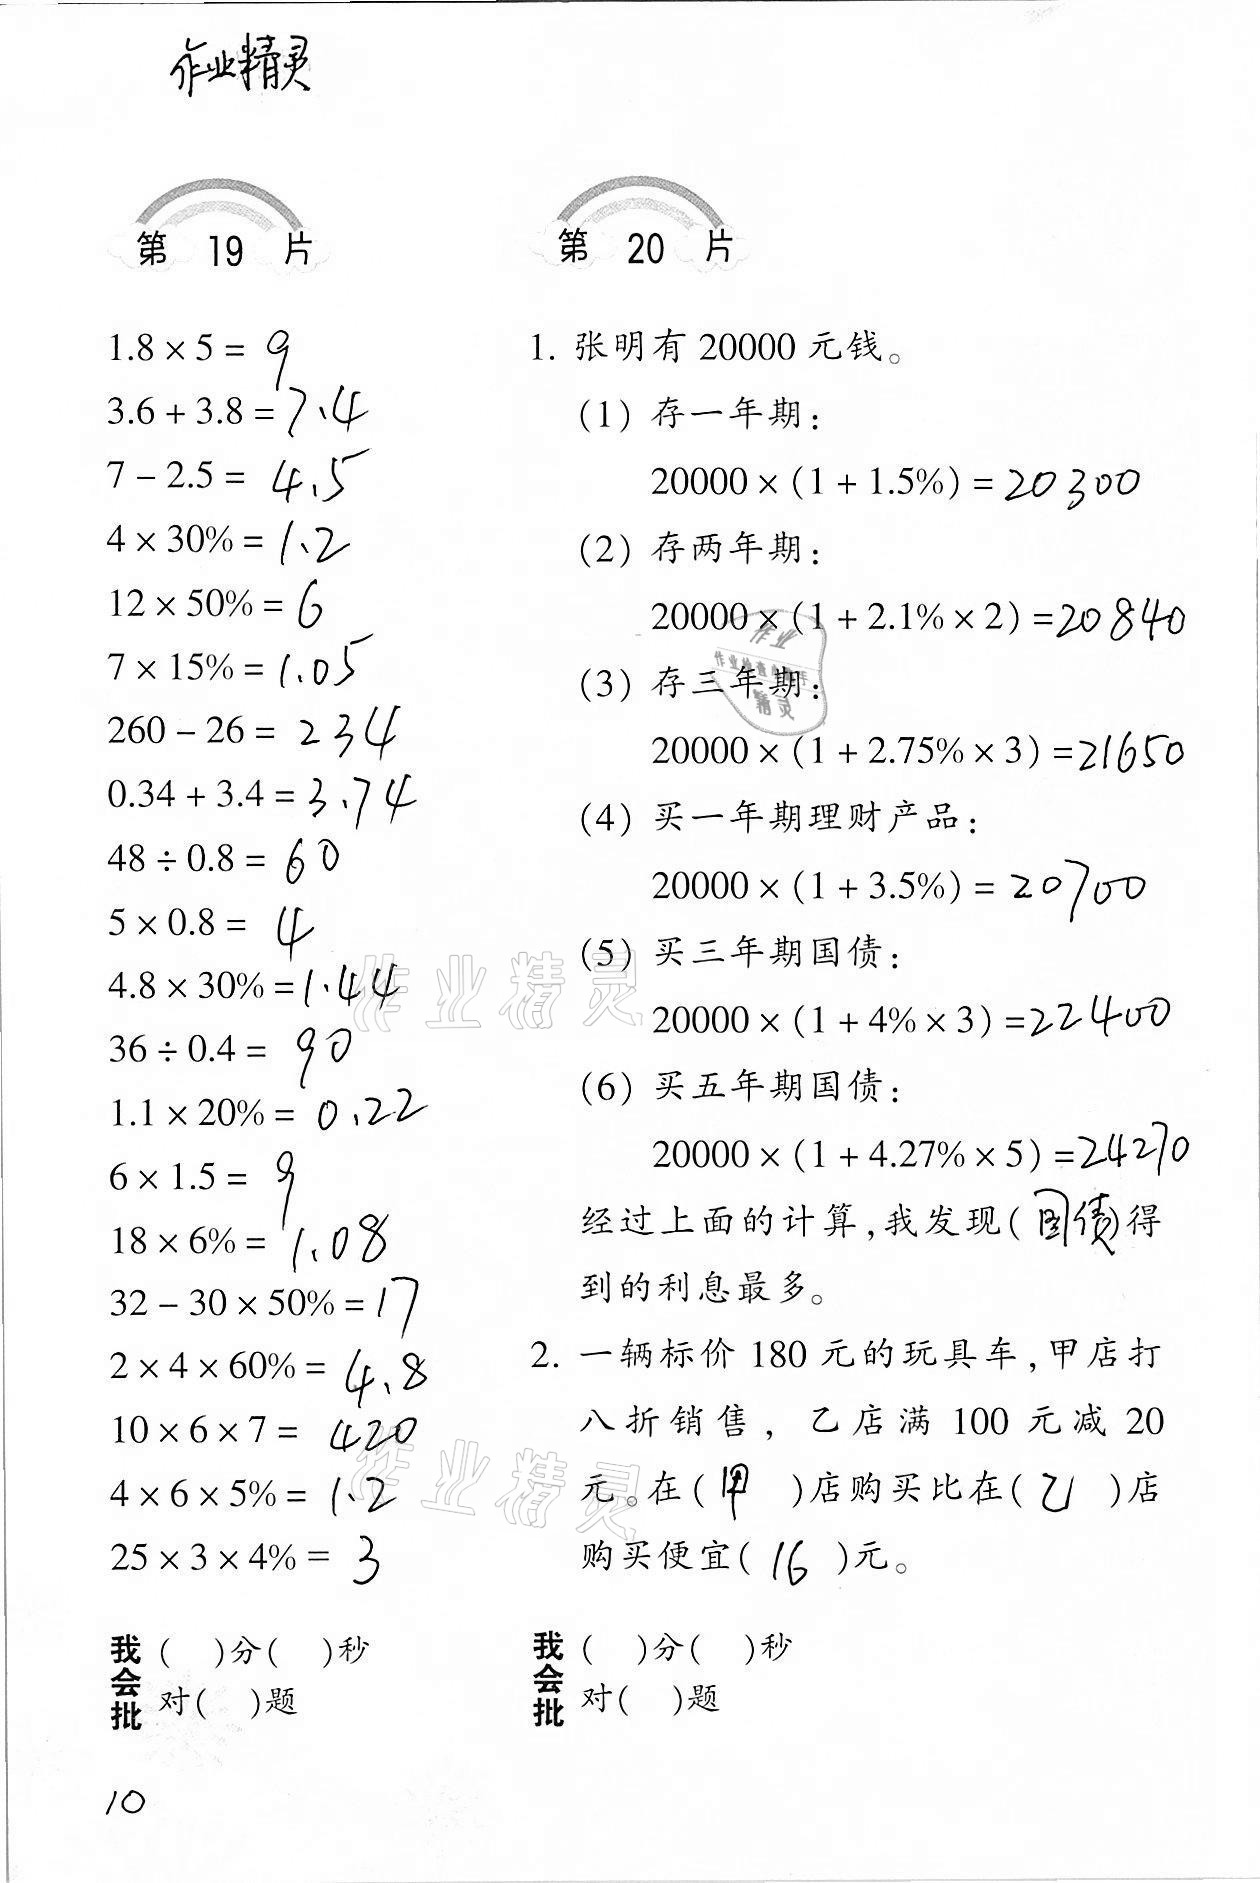 作业精灵
第 19 片
1.8 × 5 = 9
3.6 + 3.8 = 7.4
7 − 2.5 = 4.5
4 × 30% = 1.2
12 × 50% = 6
7 × 15% = 1.05
260 − 26 = 234
0.34 + 3.4 = 3.74
48 ÷ 0.8 = 60
5 × 0.8 = 4
4.8 × 30% = 1.44
36 ÷ 0.4 = 90
1.1 × 20% = 0.22
6 × 1.5 = 9
18 × 6% = 1.08
32 − 30 × 50% = 17
2 × 4 × 60% = 4.8
10 × 6 × 7 = 420
4 × 6 × 5% = 1.2
25 × 3 × 4% = 3
我会批
( )分( )秒
对( )题
第 20 片
1. 张明有 20000 元钱。
(1) 存一年期:
20000 × (1 + 1.5%) = 20300
(2) 存两年期:
20000 × (1 + 2.1% × 2) = 20840
(3) 存三年期:
20000 × (1 + 2.75% × 3) = 21650
(4) 买一年期理财产品:
20000 × (1 + 3.5%) = 20700
(5) 买三年期国债:
20000 × (1 + 4% × 3) = 22400
(6) 买五年期国债:
20000 × (1 + 4.27% × 5) = 24270
经过上面的计算,我发现(国债)得
到的利息最多。
2. 一辆标价 180 元的玩具车,甲店打
八折销售, 乙店满 100 元减 20
元。在(甲 )店购买比在(乙 )店
购买便宜(16 )元。
我会批
( )分( )秒
对( )题
作业
精灵
作业精灵
作业精灵
10